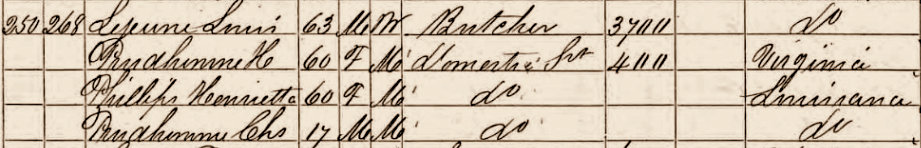 250 268 Lejeune Louis 63 M W Butcher 3700 do
Prudhomme H 60 F M domestic Svt 400 Virginia
Phillips Henrietta 60 F M do Louisiana
Prudhomme Chs 17 M M do do